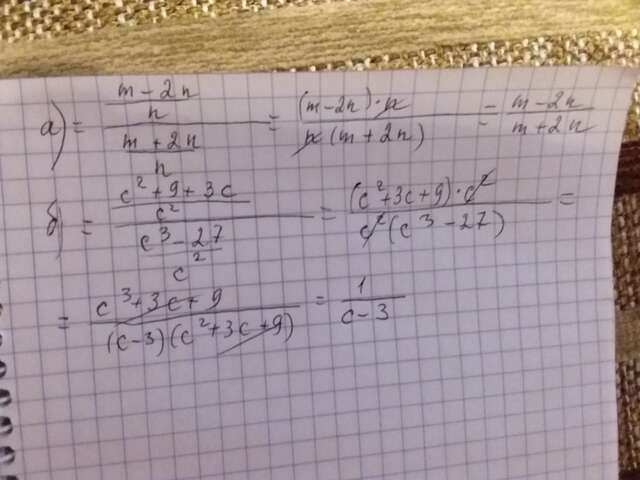 а) = ((m - 2n)/n)/((m + 2n)/n) = ((m - 2n) · n)/(n(m + 2n)) = (m - 2n)/(m + 2n)
б) = ((c² + 9 + 3c)/c²)/((c³ - 27)/c²) = ((c² + 3c + 9) · c²)/(c²(c³ - 27)) =
= (c³ + 3c + 9)/((c - 3)(c² + 3c + 9)) = 1/(c - 3)